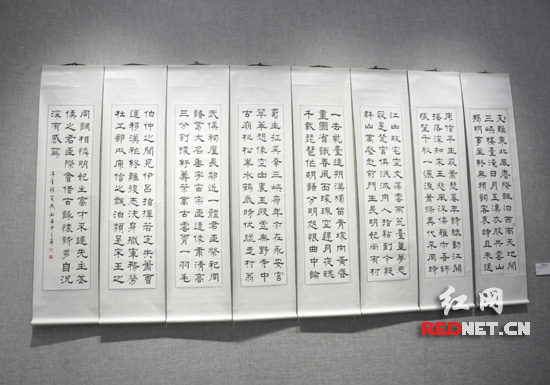 支離東北風塵際飄泊西南天地間
三峽樓臺淹日月五溪衣服共雲山
羯胡事主終無賴詞客哀時且未還
庾信平生最蕭瑟暮年詩賦動江關
搖落深知宋玉悲風流儒雅亦吾師
悵望千秋一灑淚蕭條異代不同時
江山故宅空文藻雲雨荒臺豈夢思
最是楚宮俱泯滅舟人指點到今疑
群山萬壑赴荊門生長明妃尚有村
一去紫臺連朔漠獨留青塚向黃昏
畫圖省識春風面環珮空歸月夜魂
千載琵琶作胡語分明怨恨曲中論
蜀主征吳幸三峽崩年亦在永安宮
翠華想像空山裏玉殿虛無野寺中
古廟杉松巢水鶴歲時伏臘走村翁
武侯祠屋長鄰近一體君臣祭祀同
諸葛大名垂宇宙宗臣遺像肅清高
三分割據紆籌策萬古雲霄一羽毛
伯仲之間見伊呂指揮若定失蕭曹
運移漢祚終難復志決身殲軍務勞
杜工部以庾信之飄泊類是宋玉之
同調相憐明妃生當不逢先主
侯之君臣際會借古跡詩多自況
深有感焉
红网
REDNET.CN